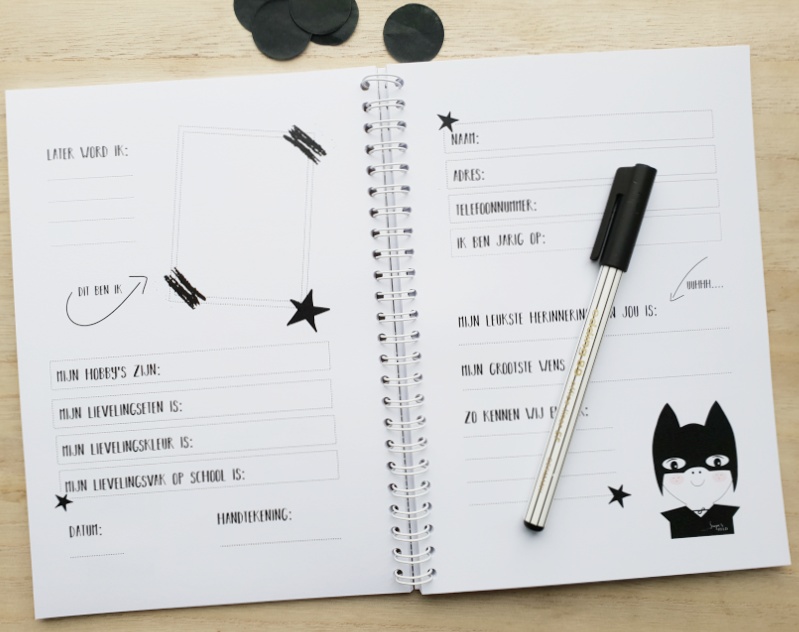 LATER WORD IK:
DIT BEN IK
MIJN HOBBY'S ZIJN:
MIJN LIEVELINGSETEN IS:
MIJN LIEVELINGSKLEUR IS:
MIJN LIEVELINGSVAK OP SCHOOL IS:
DATUM:
HANDTEKENING:
NAAM:
ADRES:
TELEFOONNUMMER:
IK BEN JARIG OP:
UUHH....
MIJN LEUKSTE JOU IS:
MIJN GROOTSTE WENS
ZO KENNEN WIJ